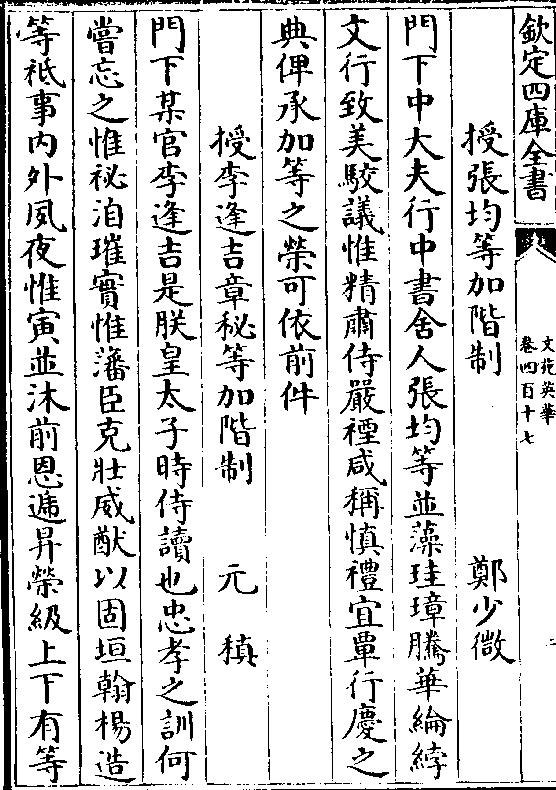 欽定四庫全書
文苑英華
卷四百十七
授張均等加階制 鄭少微
門下中大夫行中書舍人張均等並藻珪璋騰華綸綍
文行致美駮議惟精肅侍嚴禋咸稱慎禮宜覃行慶之
典俾承加等之榮可依前件
授李逢吉章秘等加階制 元稹
門下某官李逢吉是朕皇太子時侍讀也忠孝之訓何
嘗忘之惟祕洎璀實惟藩臣克壯威猷以固垣翰楊造
等祗事內外夙夜惟寅並沐前恩遞昇榮級上下有等